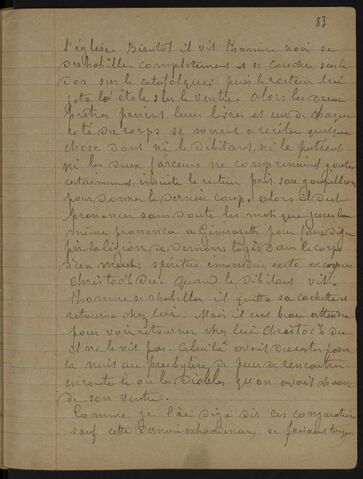 83
l'église. Bientôt il vit l'homme noir se
deshabiller completement et se coucher sur le
dos sur le catafalque; puis le recteur lui
jeta l'étole sur le ventre. Alors les deux
prêtres prirent leurs livres et un de chaque
coté du corps se mirent a reciter quelque
chose dont ni le débitant, ni le patient
ni les deux farceurs ne comprenaient goutte
certainement, ensuite le recteur prit son goupillon
pour donner le dernier coup. Alors il dut
prononcer sans doute les mots que jesus lui
même prononca a Génézareth pour faire déguer
pir la légion de démons logés dans le corps
d'un : spiritus immundus exito ex corpore
Christoch Du. Quand le débitant vit
l'homme se rhabiller il quitta sa cachette et
retourna chez lui. Mais il eut beau attendre
pour voir retourner chez lui Christoch Du
il ne le vit pas. Celui-là avait du rester passer
la nuit au presbytère de peur de rencontrer
en route le ou les Diables qu'on avait chassé
de son ventre.
Comme je l'ai déjà dit ces conjurations
sauf cette dernière, se faisaient toujours